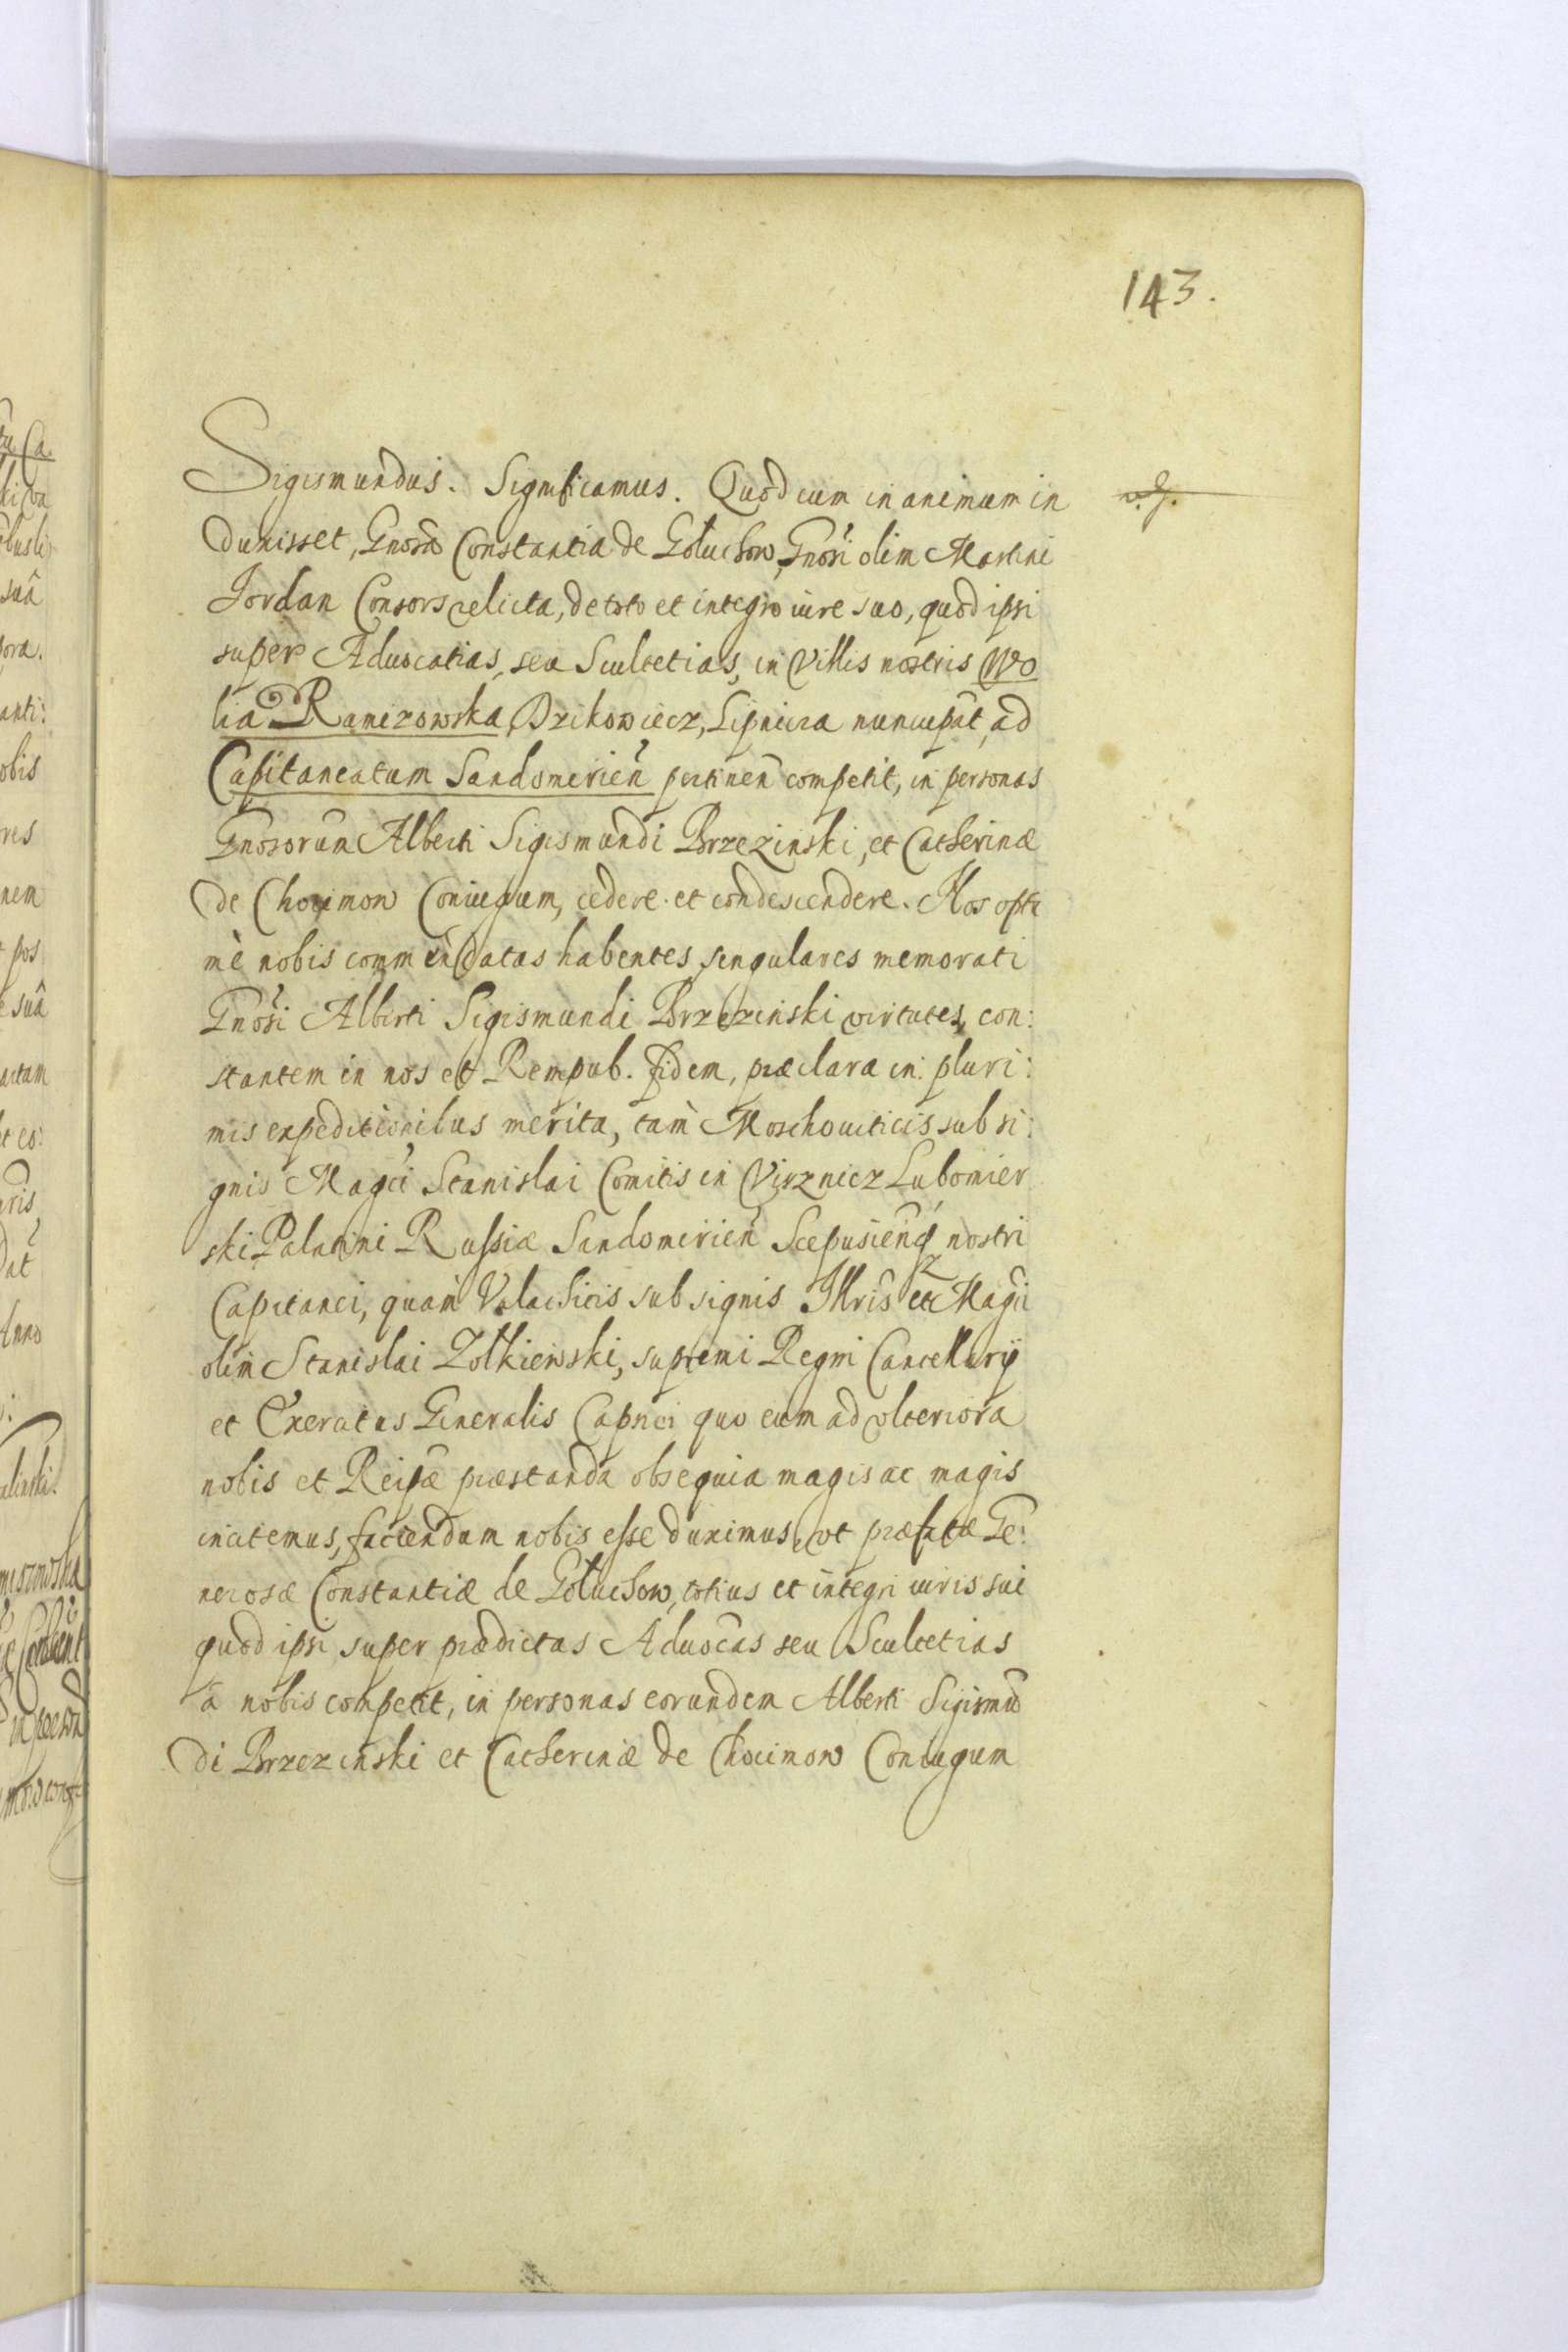 143.
Sigismundus. Significamus. Quod cum in animum in
duxisset, Gnosa Constantia de Gołuchow, Gnosi olim Martini
Jordan Consors relicta, de toto et integro iure suo, quod ipsi
super Aduocatias, seu Scultetias, in Villis nostris Wo
lia Ranizowska, Dzikowiecz, Lipnicza nuncupat, ad
Capitaneatum Sandomirien pertinen competit, in personas
Gnosorum Alberti Sigismundi Brzezinski, et Catherinæ
de Chocimow Coniugum, cedere et condescendere. Nos opti
mè nobis commendatas habentes singulares memorati
Gnosi Alberti Sigismundi Brzezinski virtutes, con:
stantem in nos et Rempub. fidem, præclara in pluri:
mis expeditionibus merita, tam Moschouiticis sub si:
gnis Magci Stanislai Comitis in Visznicz Lubomier
ski Palatini Russiæ Sandomirien Scepusienq nostri
Capitanei, quàm Valachicis sub signis Illris et Magci
olim Stanislai Zołkiewski, supremi Regni Cancellarij
et Exercitus Generalis Capnei quo eum ad vlteriora
nobis et Reipæ præstanda obsequia magis ac magis
incitemus, faciendum nobis esse duximus, vt præfatæ Ge:
nerosæ Constantiæ de Gołuchow, totius et integri iuris sui
quod ipsi super prædictas Aduocas seu Scultetias
à nobis competit, in personas eorundem Alberti Sigismu
di Brzezinski et Catherinæ de Chocimow Coniugum